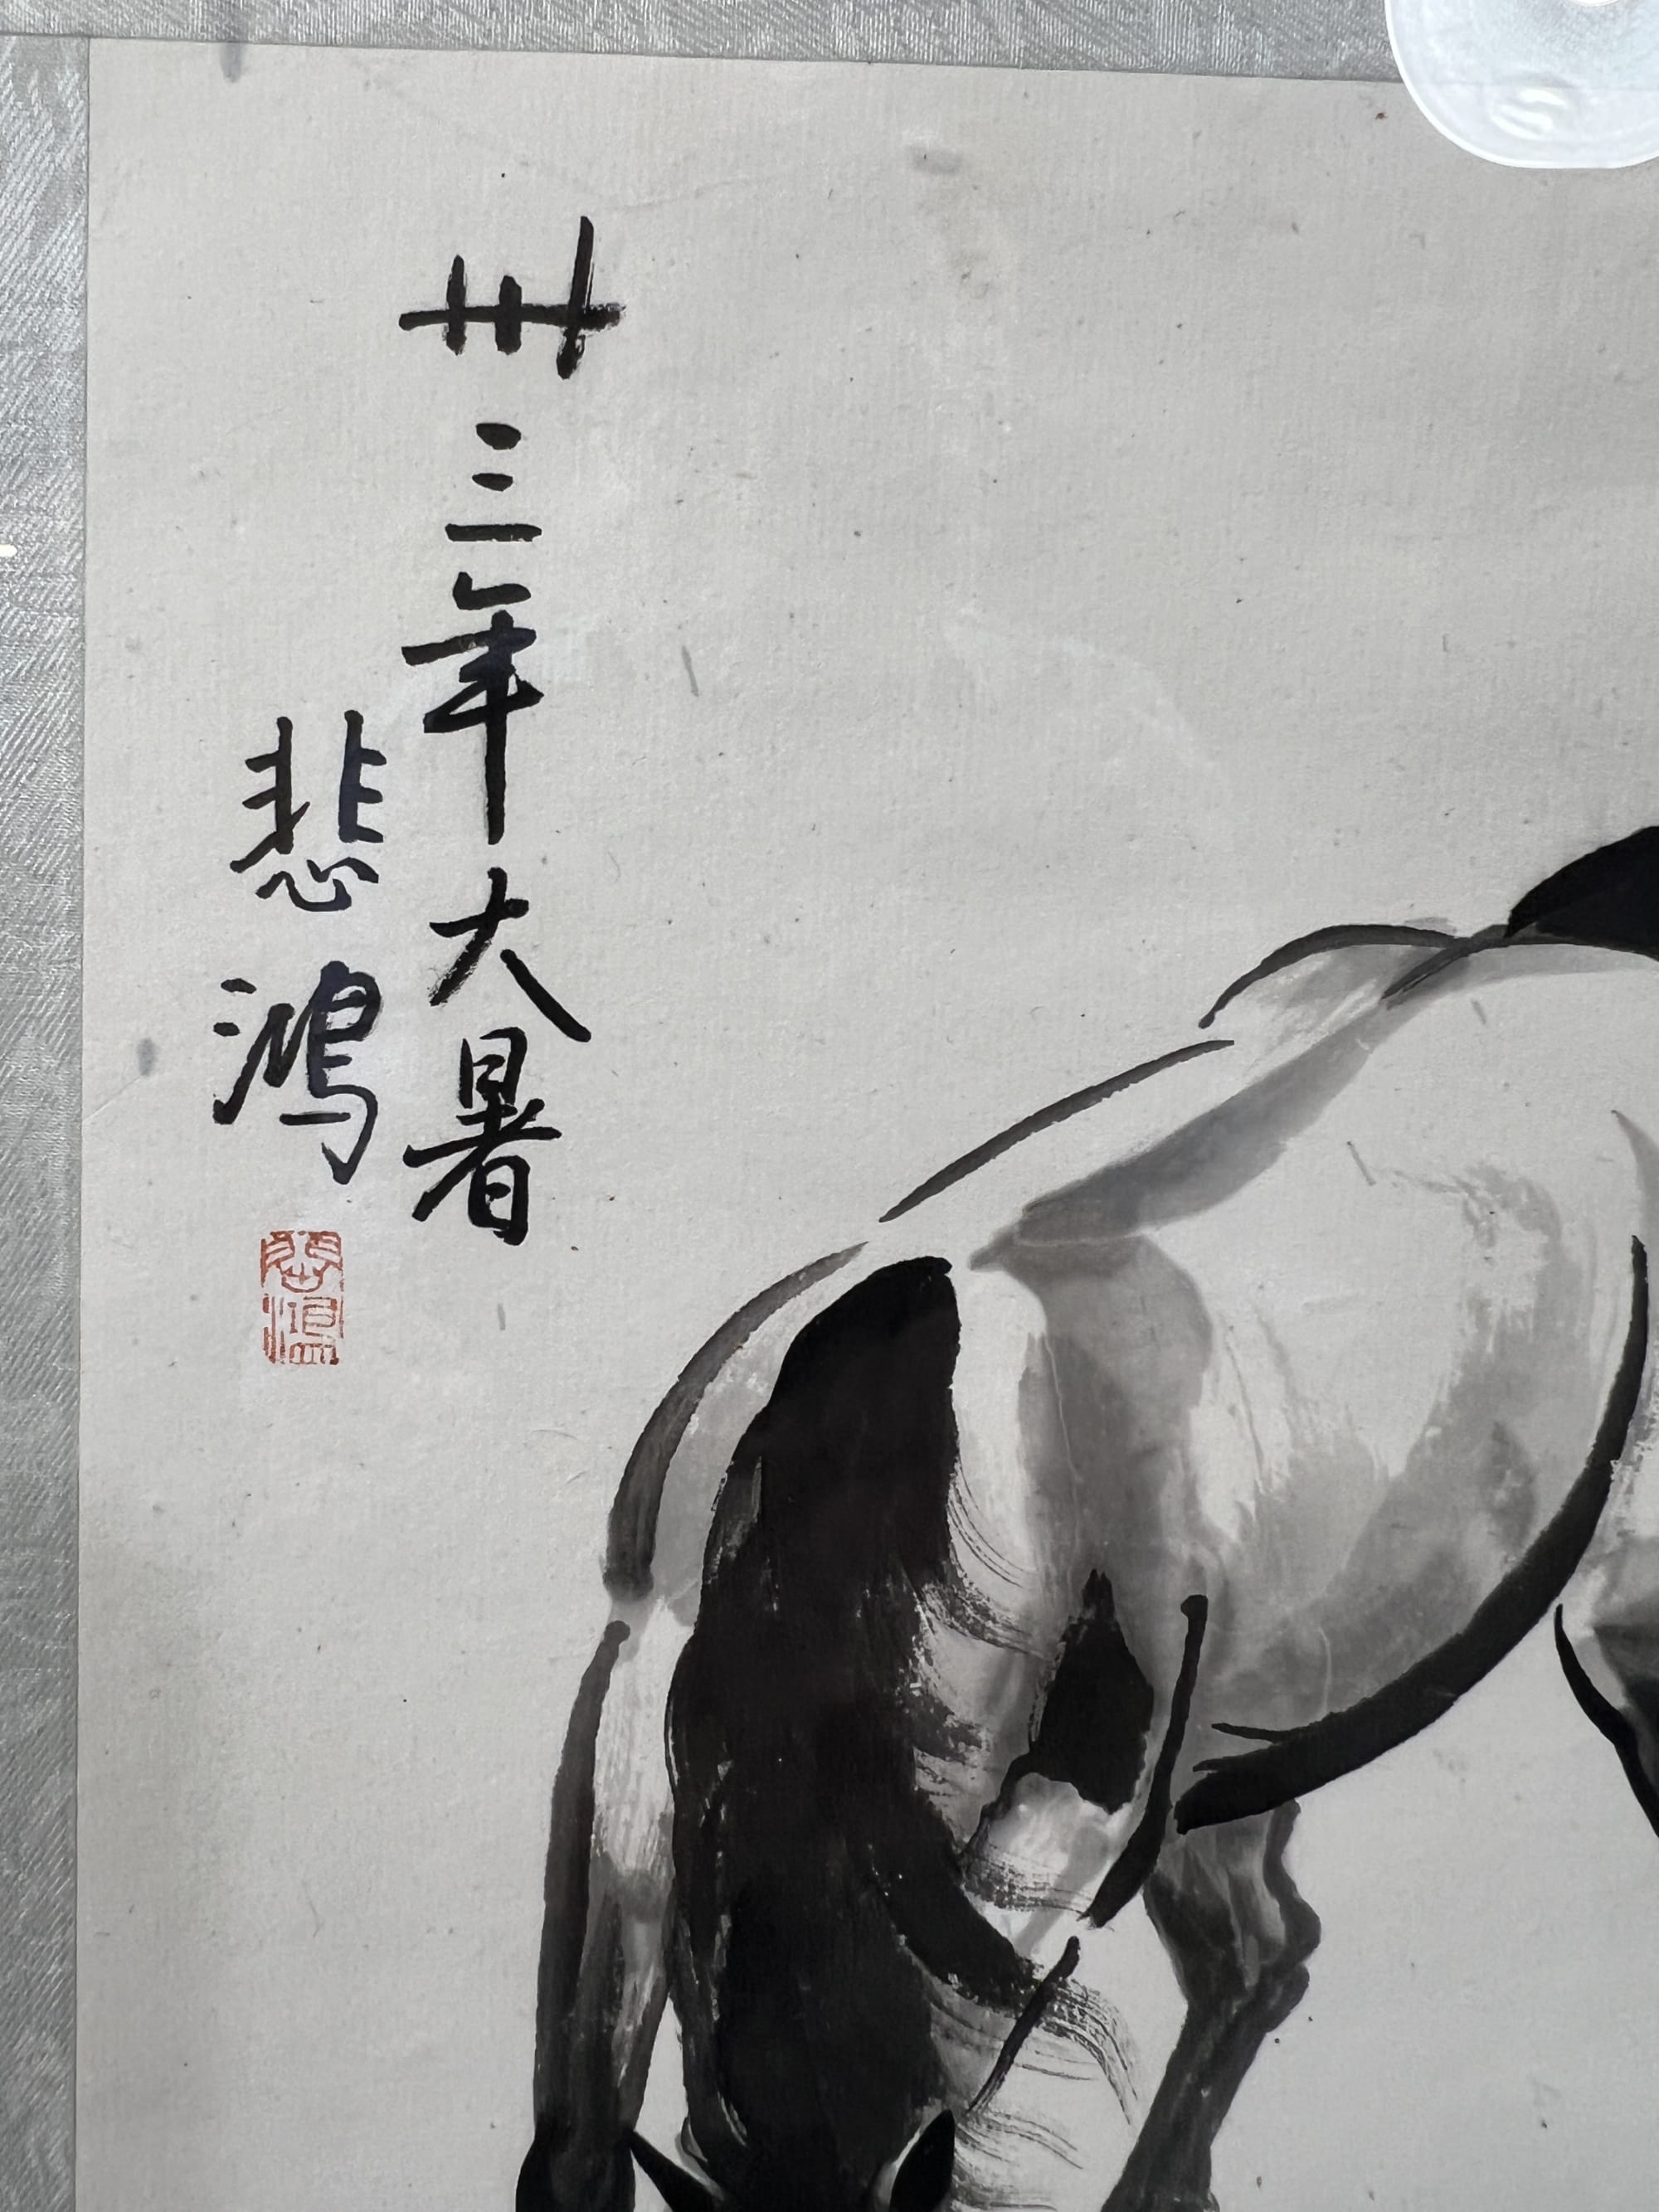 卅三年大暑
悲鴻
悲鴻